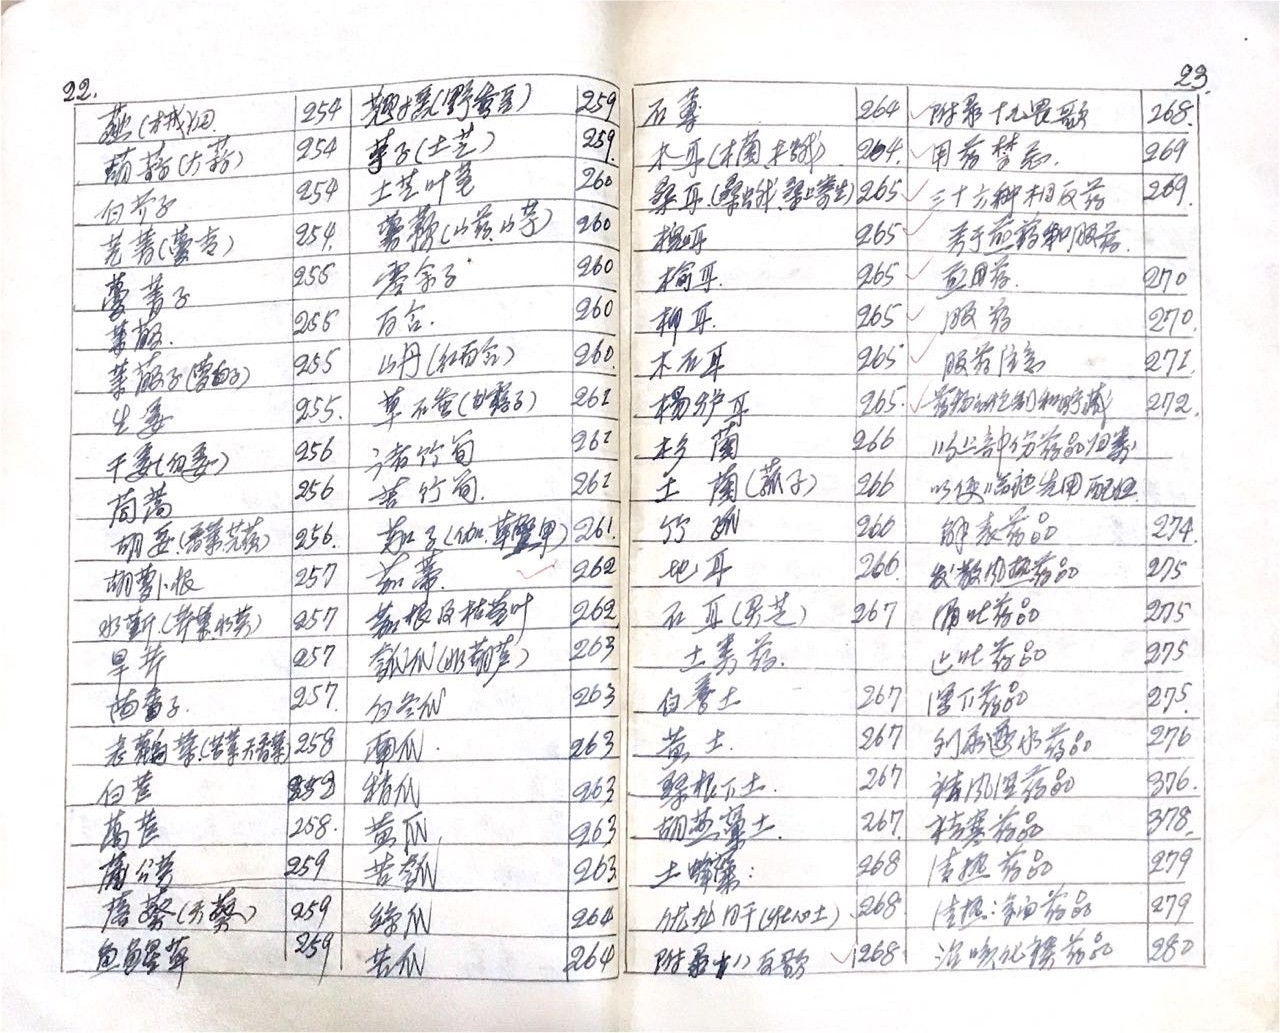 22.
254
葫蒜(大蒜) 254
白芥子 254
芜菁(蔓青) 254.
蔓菁子 255
莱菔 255
莱菔子 255
生姜 255.
干姜 256
茼蒿 256
胡荽 256.
胡萝卜根 257
水蕲 257
旱芹 257
茴香子. 257.
258
白苣
莴苣 258.
蒲公英 259
259
鱼腥草 259
翘摇(野蚕豆) 259
芋子(土芝) 259.
土芝叶茎 260
薯蓣(山药.山芋) 260
零余子 260
百合. 260
山丹(红百合) 260.
草石蚕 261
诸竹笋 261
苦竹笋. 261
茄子 261.
茄蒂 262
茄根及枯茎叶 262
瓠瓜 263
白冬瓜 263
南瓜. 263
263
黄瓜. 263
苦瓠 263
丝瓜 264
苦瓜 264
23.
石蕈 264
木耳 264.
桑耳 265
槐耳 265
榆耳. 265
柳耳. 265
木石耳 265
杨栌耳 265.
杉菌 266
土菌(菰子) 266
竹菰 266
地耳 266.
石耳(灵芝) 267
土类药.
白垩土 267
黄土. 267
267
胡燕窠土. 267.
土蜂窠: 268
268.
附录十八反歌 268.
附录十九畏歌 268.
用药禁忌. 269
三十六种相反药 269.
关于煎药和服药.
煎用药. 270
服药 270.
服药注意 271.
药物的炮制和贮藏 272.
以上部份药品归类
以便临证先用配伍.
解表药品 274.
发散风热药品 275
涌吐药品 275
止吐药品 275
泻下药品 275.
利尿逐水药品 276
祛风湿药品 376.
祛寒药品 378.
清热药品 279
279
治咳化痰药品 280